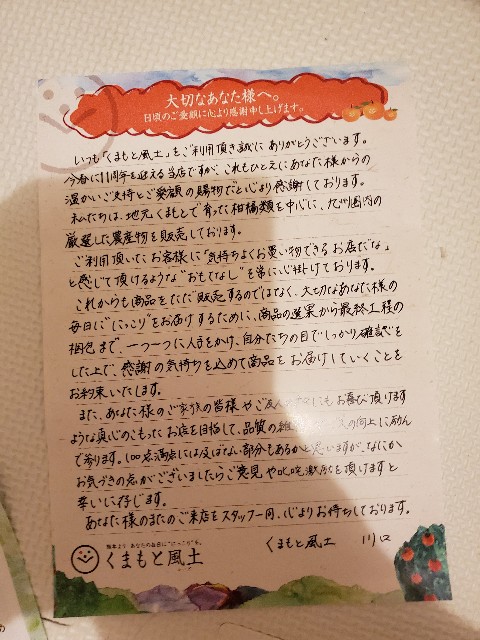 大切なあなた様へ。
日頃のご愛顧に心より感謝申し上げます。
いつも「くまもと風土」をご利用頂き誠にありがとうございます。
今春に11周年を迎える当店ですが、これもひとえにあなた様からの
温かいご支持とご愛顧の賜物でと心より感謝しております。
私たちは、地元くまもとで育った柑橘類を中心に、九州圏内の
厳選した農産物を販売しております。
ご利用頂いたお客様に「気持ちよくお買い物できるお店だな」
と感じて頂けるような"おもてなし"を常に心掛けております。
これからも商品をただ販売するのではなく、大切なあなた様の
毎日に"にっこり"をお届けするために、商品の選果から最終工程の
梱包まで、一つ一つに人手をかけ、自分たちの目でしっかり確認を
した上で、感謝の気持ちを込めて商品をお届けしていくことを
お約束いたします。
また、あなた様のご家族の皆様やご友人にもお喜び頂けます
ような真心のこもったお店を目指して、品質の維の向上に励ん
で参ります。100点満点には及ばない部分もあるかと思いますが、なにか
お気づきの点がございましたらご意見や叱咤激励を頂けますと
幸いに存じます。
あなた様のまたのご来店をスタッフ一同、心よりお待ちしております。
くまもと風土 川口
熊本より、あなたの毎日に"にっこり"を。
くまもと風土